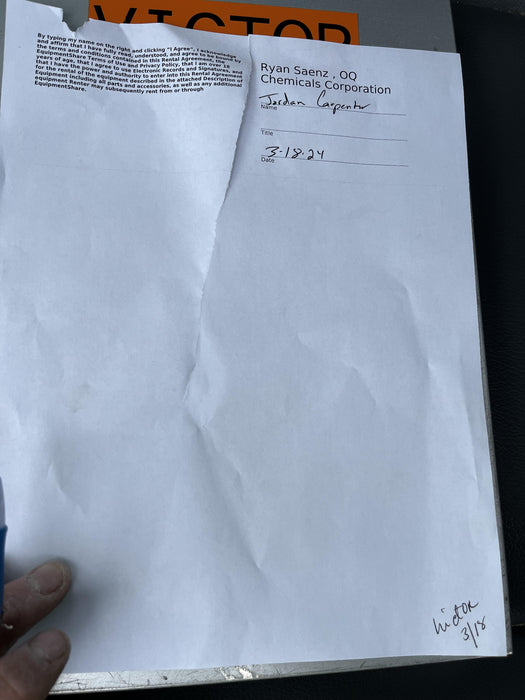 VICTOR
By typing my name on the right and clicking "I Agree", I acknowledge
and affirm that I have fully read, understood, and agree to be bound by
the terms and conditions contained in this Rental Agreement, the
EquipmentShare Terms of Use and Privacy Policy, that I am over 18
years of age, that I agree to use Electronic Records and Signatures, and
that I have the power and authority to enter into this Rental Agreement
for the rental of the equipment described in the attached Description of
Equipment including all parts and accessories, as well as any additional
equipment Renter may subsequently rent from or through
EquipmentShare.
Ryan Saenz , OQ
Chemicals Corporation
Jordan Carpenter
Name
Title
3-18-24
Date
Victor
3/18